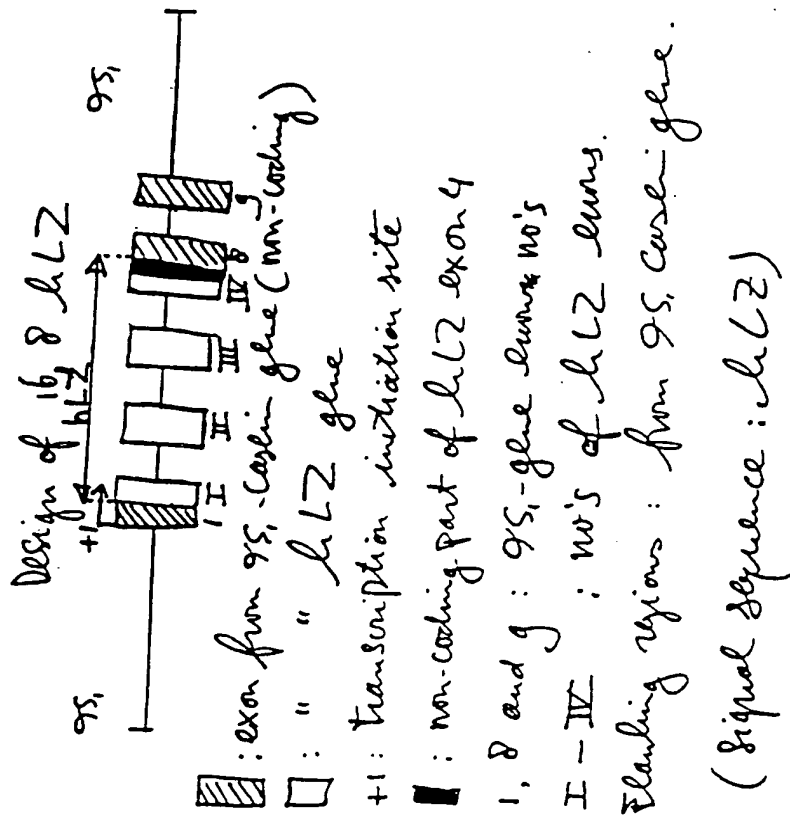 Design of 16, 8 hLZ
9S, 9S,
+1
hLZ
1 I II III IV 8 9
: exon from 9S, -casein gene (non-coding)
: " " hLZ gene
+1 : transcription initiation site
: non-coding part of hLZ exon 4
1, 8 and 9 : 9S, -gene exons no's
I - IV : no's of hLZ exons.
Flanking regions : from 9S, casein gene.
(Signal sequence : hLZ)